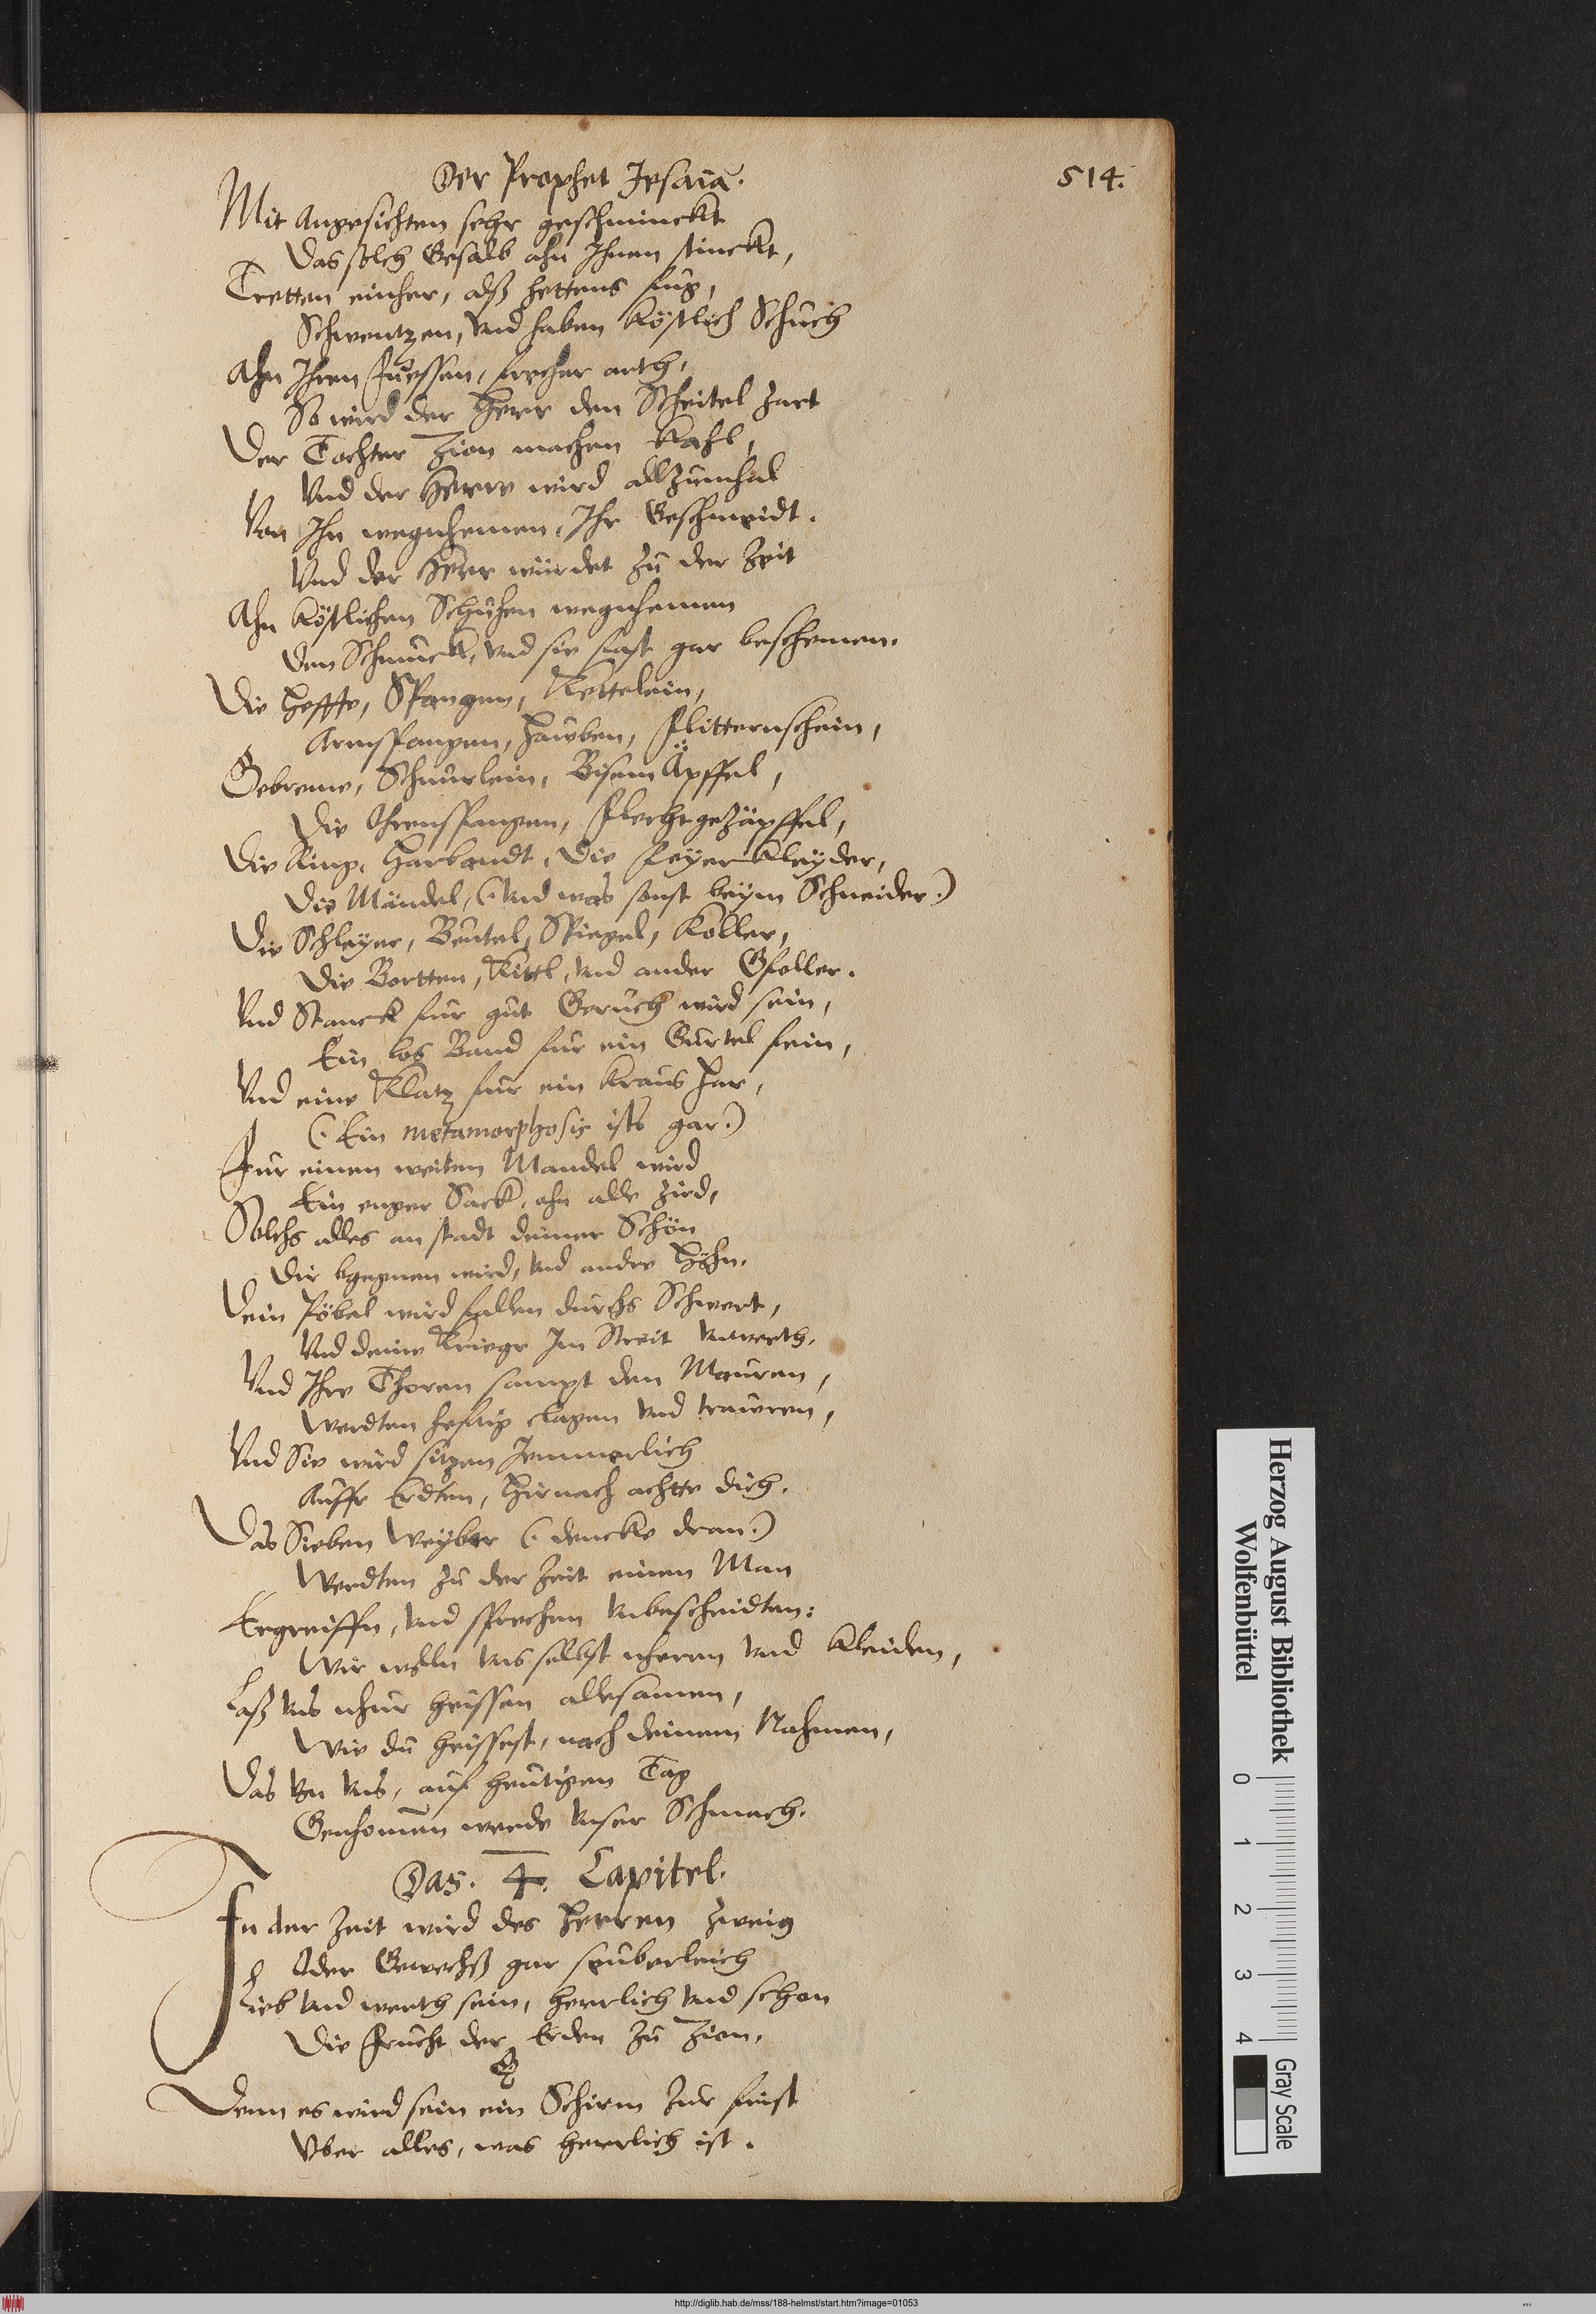 Der Prophet Jesaia.
514.
Mit Angesichten sehr geschminckt
Das solch Gesalb ahn Ihnen stinckt,
Tretten einher, alß hettens fug,
Schwentzen, Vnd haben köstlich Schuch
Ahn Ihren Füessen, frecher arth,
So wird der Herr den Scheitel zart
Der Tochter Zion machen kahl,
Vnd der Herr wird allzumhal
Von Ihn wegnhemen, Ihr Geschmeidt.
Vnd der Herr würdet zu der Zeit
Ahn köstlichen Schuhen wegnhemen
Den Schmuck, Vnd sie fast gar beschemen.
Die Heffte, Spangen, Kettelein,
Armspangen, Hauben, Flitternschein,
Gebreme, Schnürlein, Bisem Äpffel,
Die Ohrenspangen, Flechtgezäpffel,
Die Ring, Harbandt, Die FeyerKleyder,
Die Mändel, (. Vnd was sonst beym Schneider.)
Die Schleyer, Beutel, Spiegel, Koller,
Die Bortten, Kittl, Vnd ander Gfoller.
Vnd Stanck für gut Geruch wird sein,
Ein los Band für ein Gürtel fein,
Vnd eine Klatz für ein kraus Har,
(. Ein metamorphosis ists gar.)
Für einen weiten Mandel wird
Ein enger Sack, ohn alle Zird,
Solchs alles an stadt deiner Schön
Dir bgegnen wird, Vnd andre Höhn.
Dein Pöbel wird fallen durchs Schwert,
Vnd deine Kriegr Im Streit Vnwerth.
Vnd Ihre Thoren sampt den Mauren,
Werdten hefftig clagen Vnd trauren,
Vnd Sie wird sitzen Jemmerlich
Auffr Erdten, Hirnach achtte dich.
Das Sieben Weyber (. dencke dran.)
Werdten zu der Zeit einen Man
Ergreiffn, Vnd sprechen Vnbescheidten:
Wir wölln Vns selbst nheren Vnd kleiden,
Laß Vns nhur heissen allesamen,
Wie du heissest, nach deinem Nahmen,
Das Von Vns, auf heutigen Tag
Genhomen werde Vnser Schmach.
Das. 4. Capitel.
In der Zeit wird des Herren Zweig
Oder Gewechß gar seuberleich
Lieb Vnd werth sein, herrlich Vnd schon
Die Frucht der Erden zu Zion.
Denn es wird sein ein Schirm zur frist
Vber alles, was herrlich ist.
Herzog August Bibliothek
Wolfenbüttel
0 1 2 3 4
Gray Scale
http://diglib.hab.de/mss/188-helmst/start.htm?image=01053